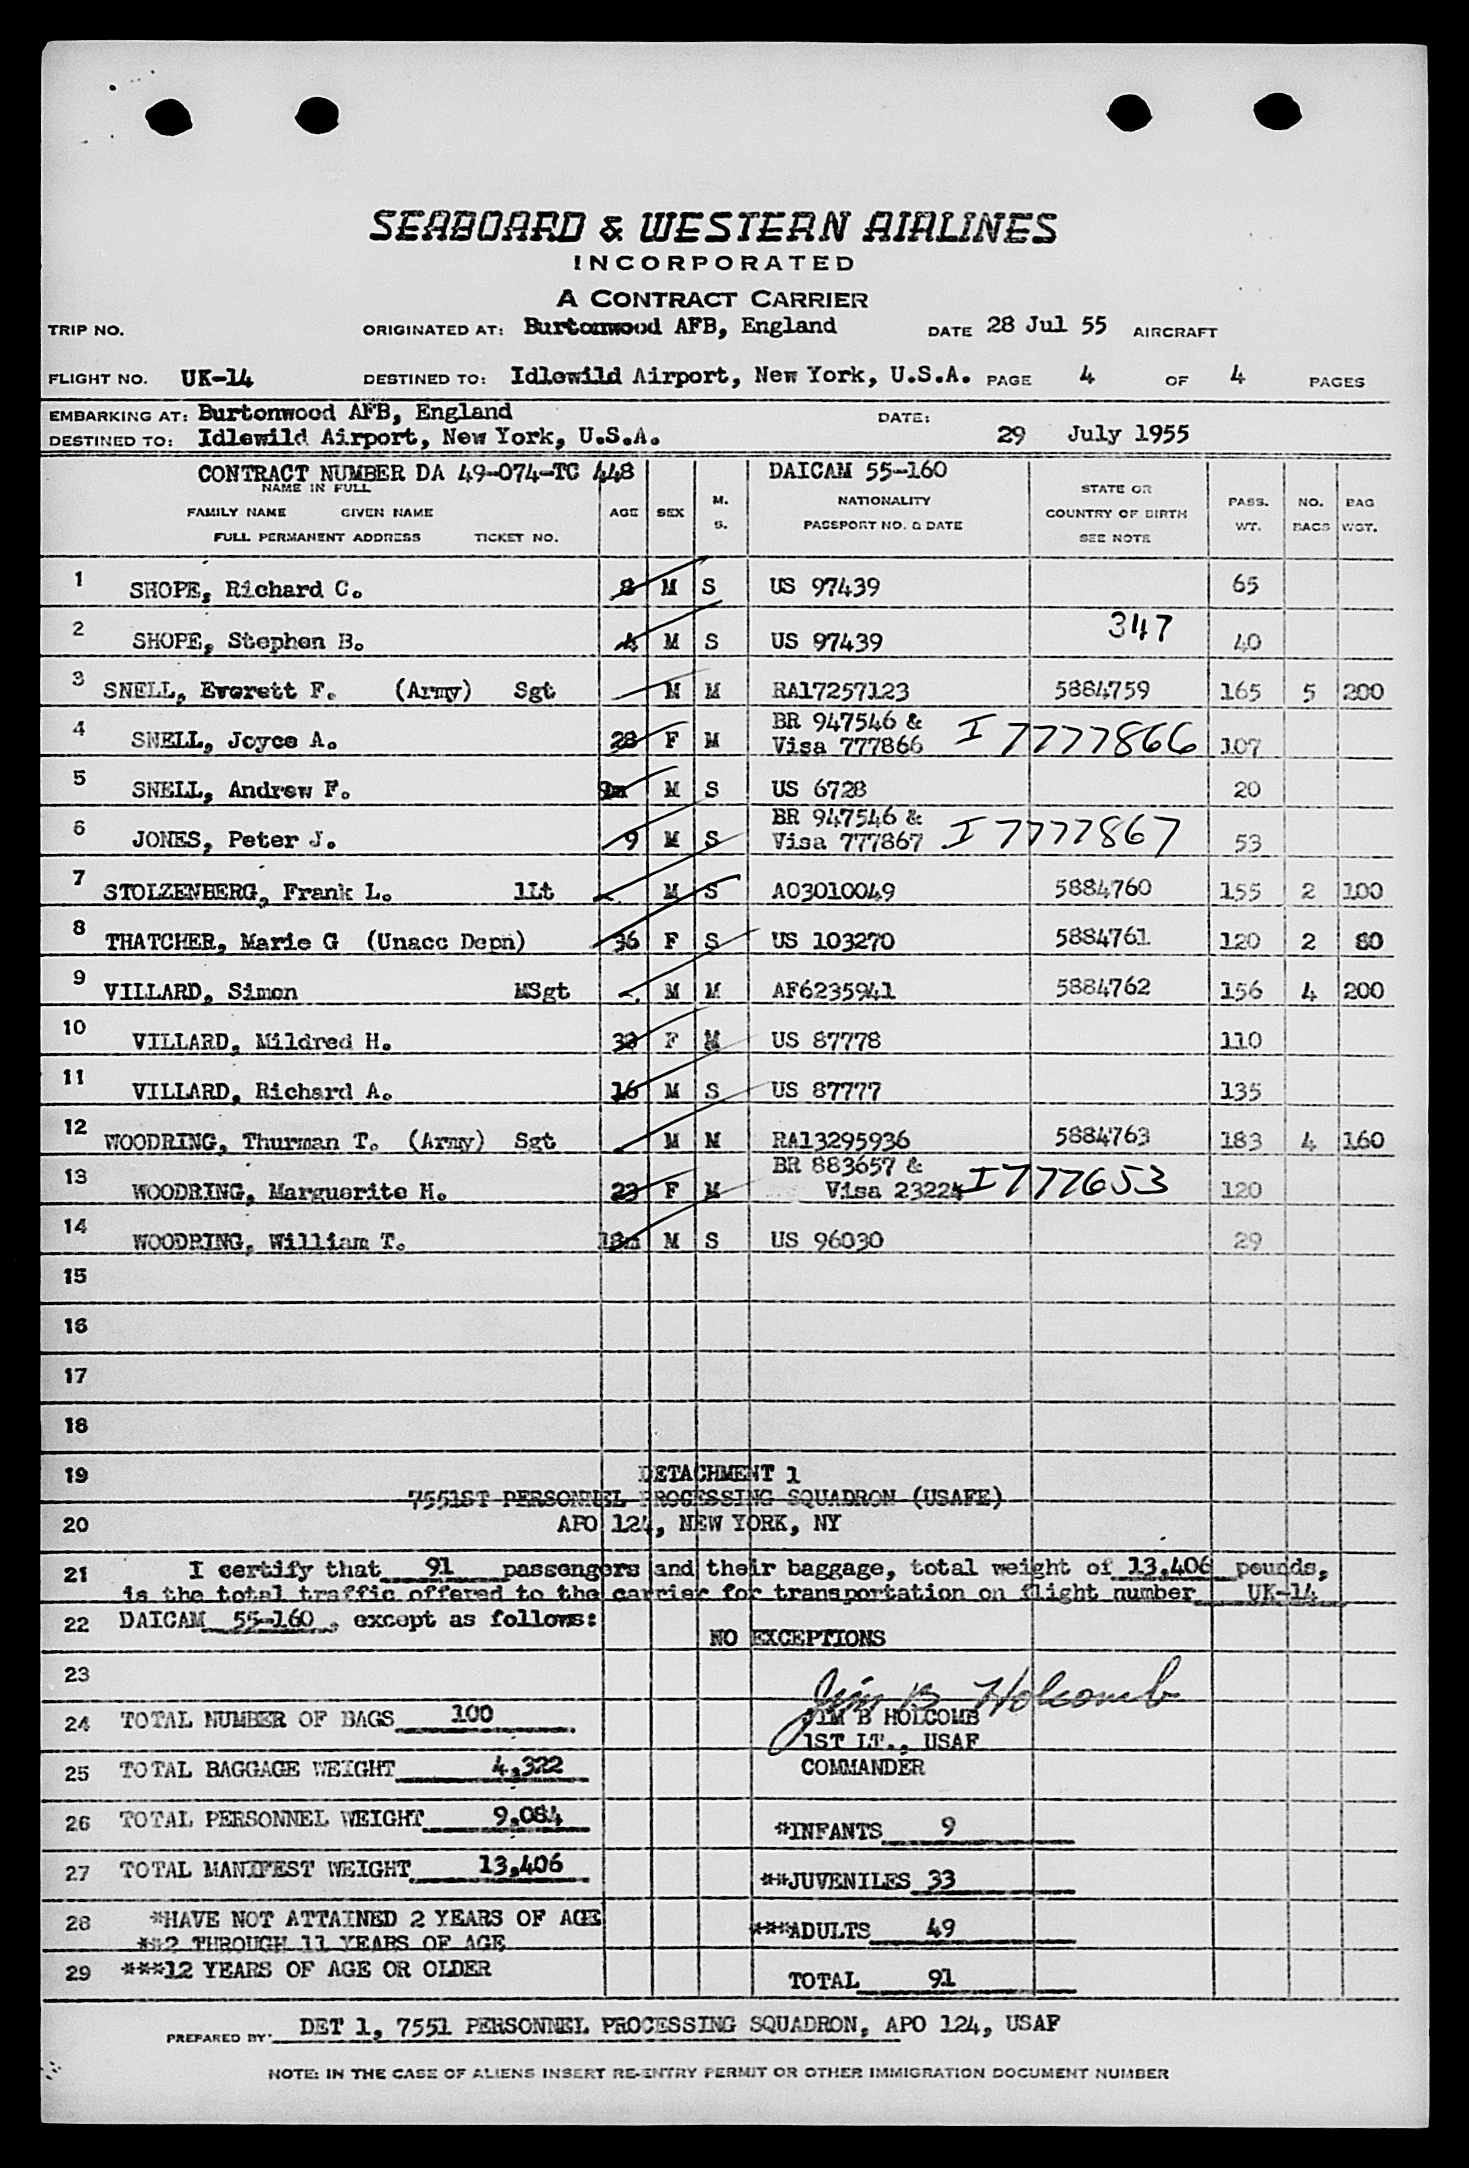 SEABOARD & WESTERN AIRLINES
INCORPORATED
A CONTRACT CARRIER
TRIP NO. ORIGINATED AT: Burtonwood AFB, England DATE 28 Jul 55 AIRCRAFT
FLIGHT NO. UK-14 DESTINED TO: Idlewild Airport, New York, U.S.A. PAGE 4 OF 4 PAGES
EMBARKING AT: Burtonwood AFB, England DATE:
DESTINED TO: Idlewild Airport, New York, U.S.A. 29 July 1955
CONTRACT NUMBER DA 49-074-TC 448 DAICAM 55-160
NAME IN FULL
FAMILY NAME GIVEN NAME AGE SEX M. S. NATIONALITY STATE OR PASS. NO. BAG
FULL PERMANENT ADDRESS TICKET NO. PASSPORT NO. & DATE COUNTRY OF BIRTH WT. BAGS WGT.
SEE NOTE
1 SHOPE, Richard C. 8 M S US 97439 65
2 SHOPE, Stephen B. 4 M S US 97439 347 40
3 SNELL, Everett F. (Army) Sgt M M RA17257123 5884759 165 5 200
4 SNELL, Joyce A. 28 F M BR 947546 & Visa 777866 I 7777866 107
5 SNELL, Andrew F. 9m M S US 6728 20
6 JONES, Peter J. 9 M S BR 947546 & Visa 777867 I 7777867 53
7 STOLZENBERG, Frank L. 1Lt M S AO3010049 5884760 155 2 100
8 THATCHER, Marie G (Unacc Depn) 36 F S US 103270 5884761 120 2 80
9 VILLARD, Simon MSgt M M AF6235941 5884762 156 4 200
10 VILLARD, Mildred H. F M US 87778 110
11 VILLARD, Richard A. 16 M S US 87777 135
12 WOODRING, Thurman T. (Army) Sgt M M RA13295936 5884763 183 4 160
13 WOODRING, Marguerite H. 23 F M BR 883657 & Visa 23224 I777653 120
14 WOODRING, William T. 18m M S US 96030 29
15
16
17
18
19 DETACHMENT 1
7551ST PERSONNEL PROCESSING SQUADRON (USAFE)
20 APO 124, NEW YORK, NY
21 I certify that 91 passengers and their baggage, total weight of 13,406 pounds,
is the total traffic offered to the carrier for transportation on flight number UK-14
22 DAICAM 55-160, except as follows:
NO EXCEPTIONS
23 Jim B Holcomb
24 TOTAL NUMBER OF BAGS 100 JIM B HOLCOMB
1ST LT., USAF
25 TOTAL BAGGAGE WEIGHT 4,322 COMMANDER
26 TOTAL PERSONNEL WEIGHT 9,084 *INFANTS 9
27 TOTAL MANIFEST WEIGHT 13,406 **JUVENILES 33
28 *HAVE NOT ATTAINED 2 YEARS OF AGE ***ADULTS 49
**2 THROUGH 11 YEARS OF AGE
29 ***12 YEARS OF AGE OR OLDER TOTAL 91
PREPARED BY: DET 1, 7551 PERSONNEL PROCESSING SQUADRON, APO 124, USAF
NOTE: IN THE CASE OF ALIENS INSERT RE-ENTRY PERMIT OR OTHER IMMIGRATION DOCUMENT NUMBER